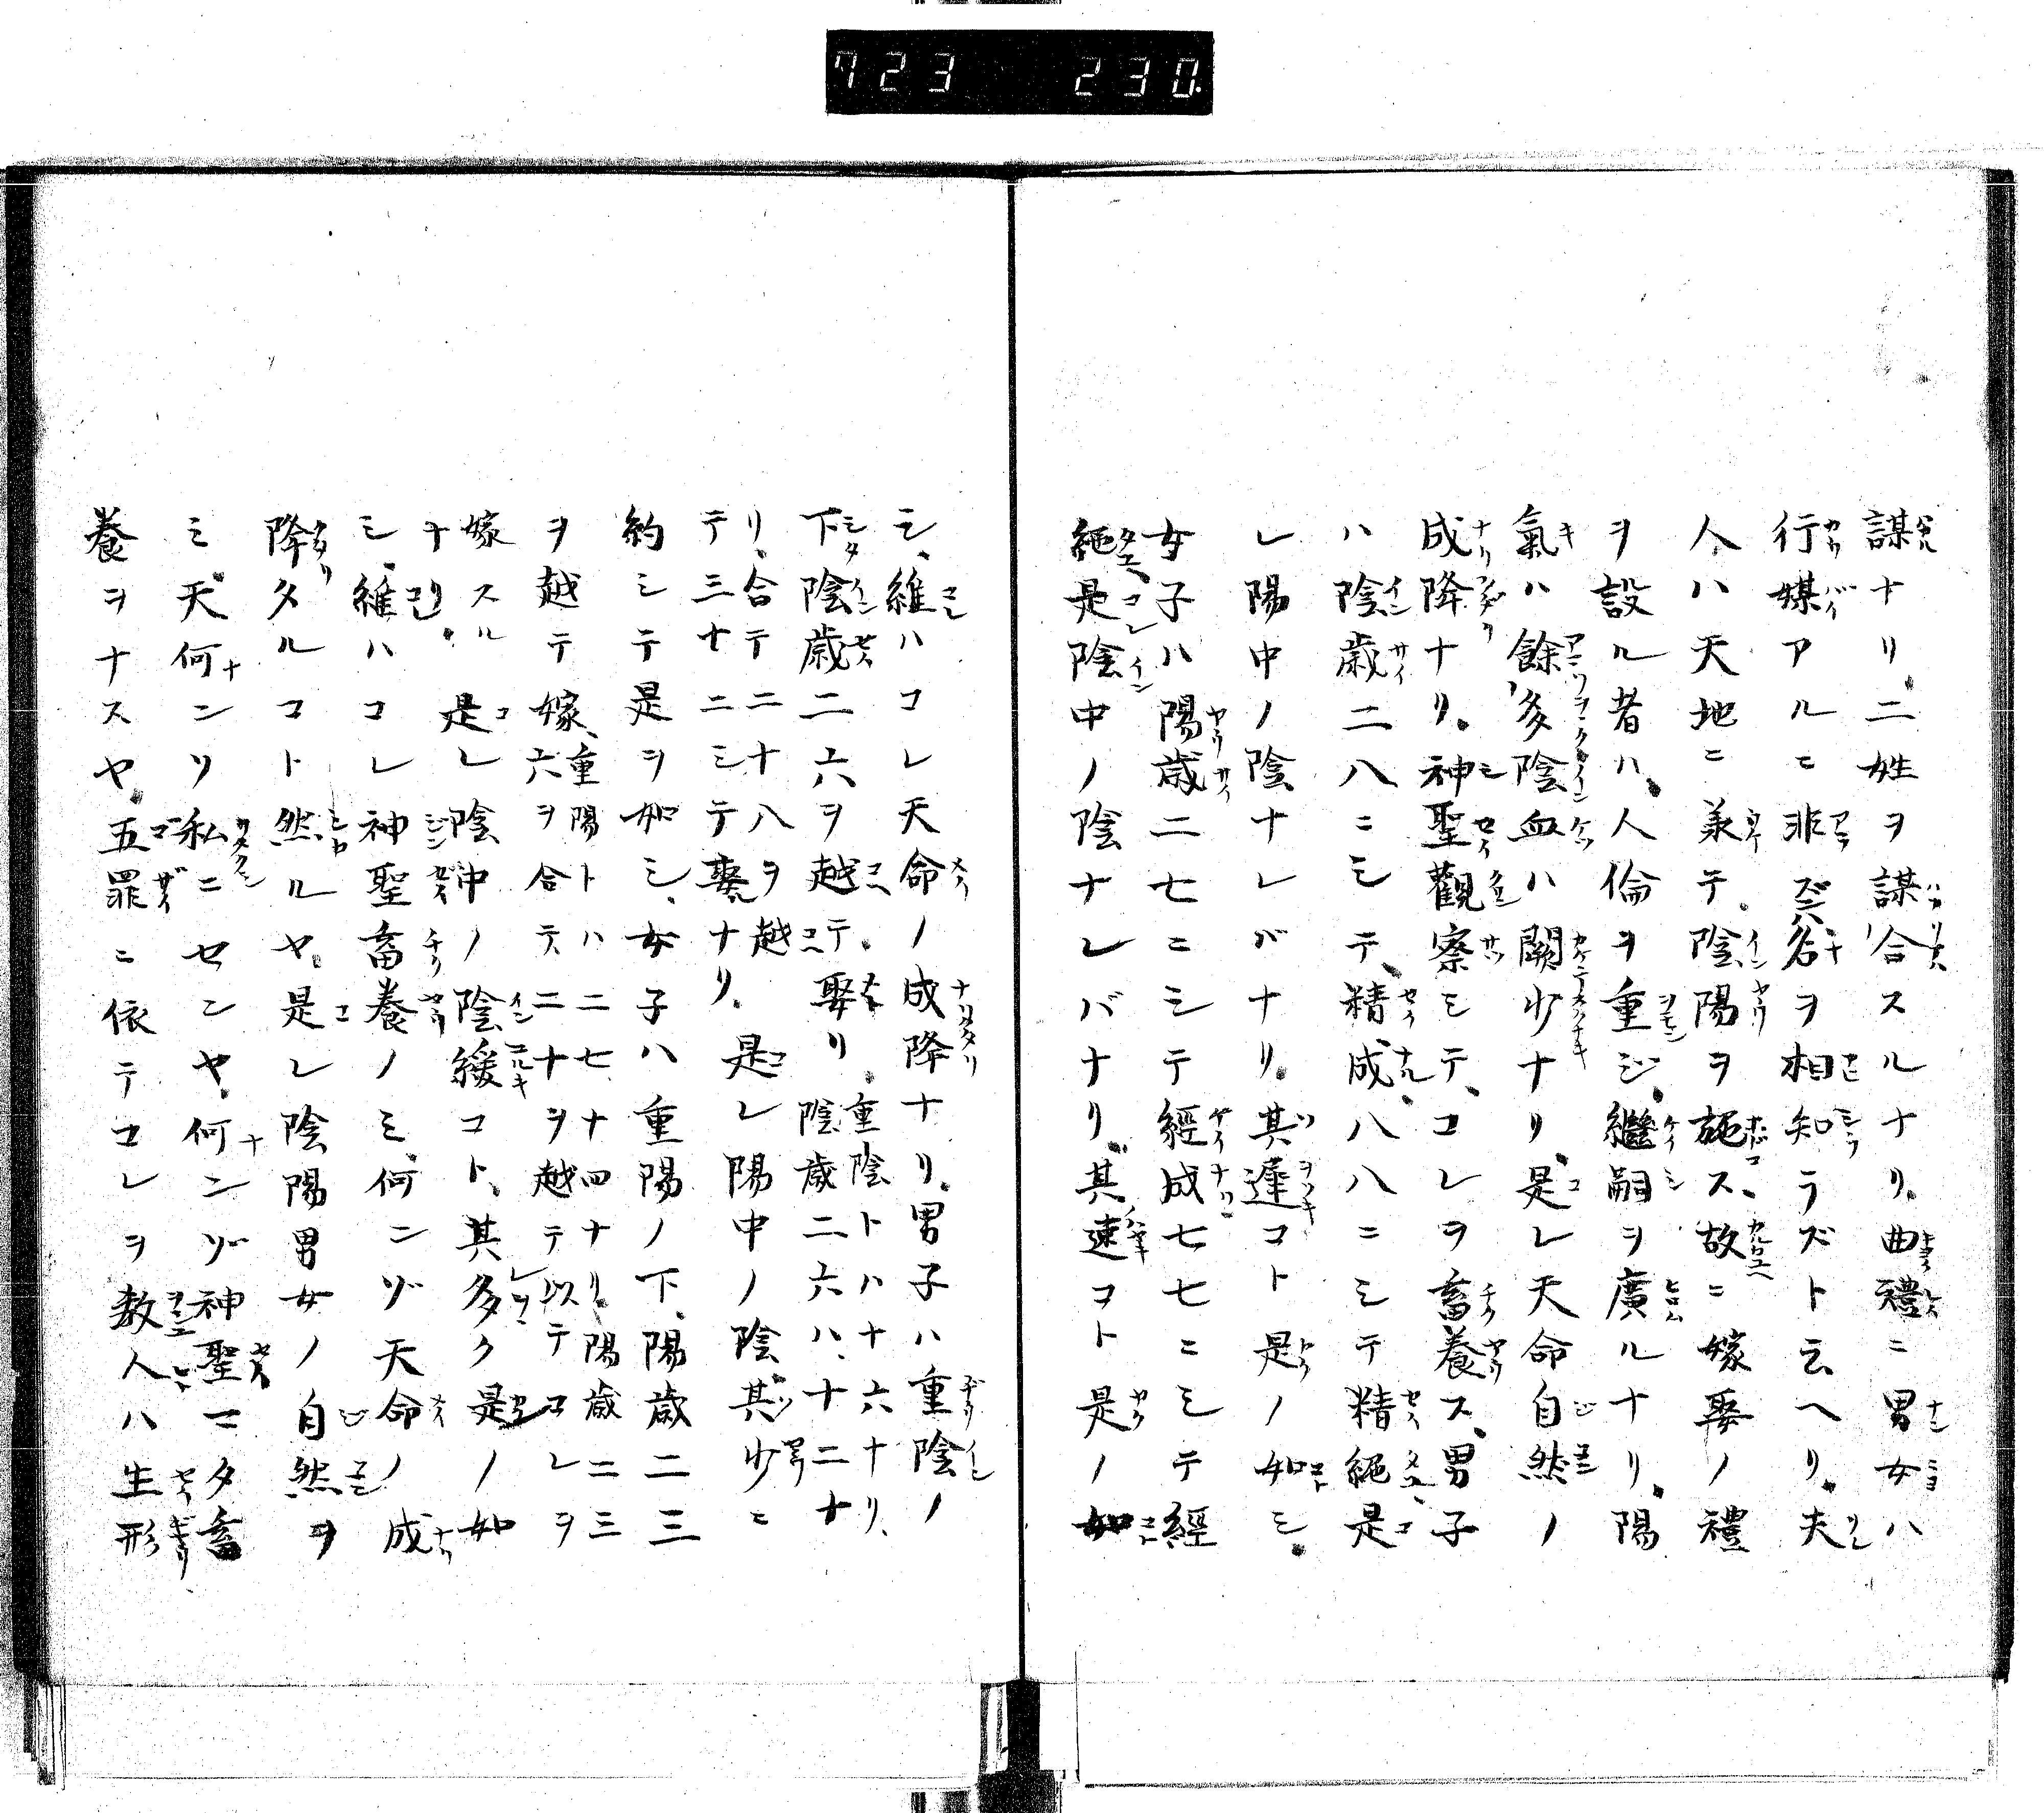 723 230
謀ナリ。二姓ヲ謀合スルナリ。曲禮ニ男女ハ
行媒アルニ非ズハ名ヲ相知ラズト云ヘリ。夫
人ハ天地ニ羕テ。陰陽ヲ施ス、故ニ嫁娶ノ禮
ヲ設ル者ハ、人倫ヲ重ジ。繼嗣ヲ廣ルナリ。陽
氣ハ餘多陰血ハ闕少ナリ。是レ天命自然ノ
成降ナリ。神聖觀察ミテ、コレヲ畜養ス、男子
ハ陰歳二八ニシテ、精成、八八ニシテ精絕是
レ陽中ノ陰ナレバナリ。其遲コト是ノ如シ。
女子ハ陽歳二七ニシテ經成七七ニシテ經
絕是陰中ノ陰ナレバナリ。其速コト是ノ如
シ、維ハコレ天命ノ成降ナリ。男子ハ重陰ノ
下陰歳二六ヲ越テ。娶リ。重陰トハ十六ナリ、陰歳二六ハ、十二ナ
リ、合テ二十八ヲ越テ三十ニシテ娶ナリ。是レ陽中ノ陰其少ニ
約シテ是ヲ如シ、女子ハ重陽ノ下、陽歳二三
ヲ越テ嫁、重陽トハ二七十四ナリ、陽歳二三六ヲ合テ二十ヲ越テ以テコレヲ
嫁スルナリ。是レ陰中ノ陰緩コト、其多ク是ノ如
シ、維ハコレ神聖畜養ノミ、何ンゾ天命ノ成
降タルコト然ルヤ。是レ陰陽男女ノ自然ヲ
ミ天何ンソ私ニセンヤ。何ンゾ神聖マタ畜
養ヲナスヤ。五罪ニ依テコレヲ教人ハ生形